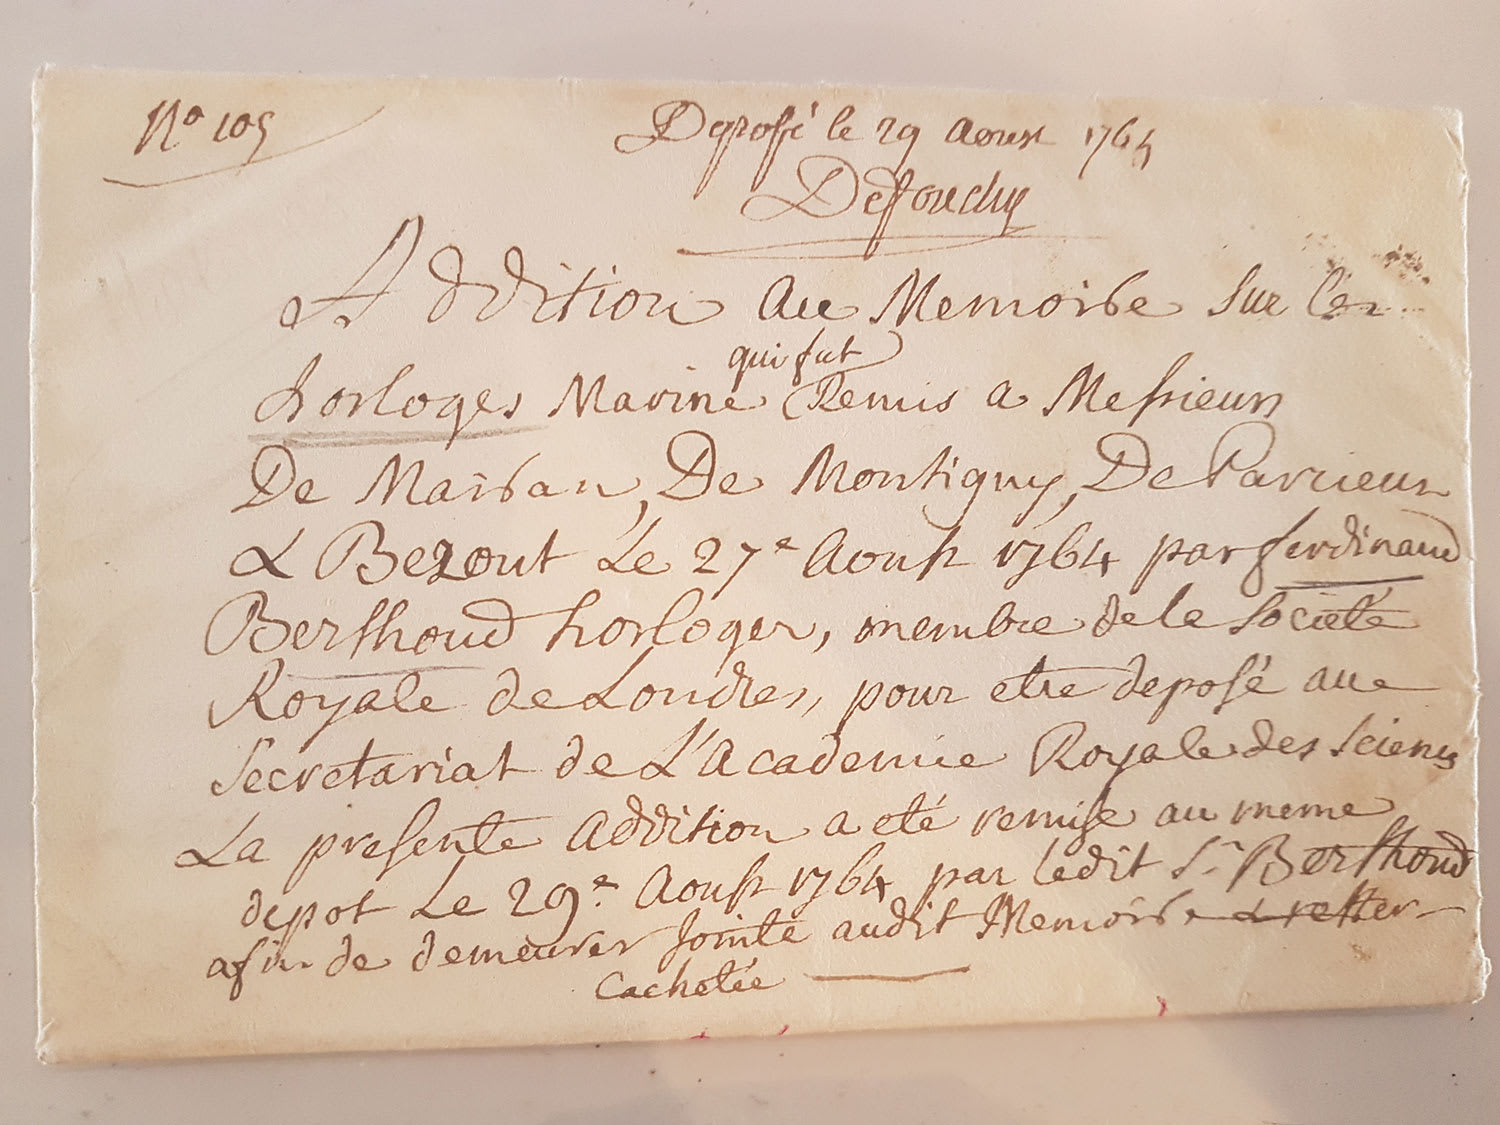 No 105
Deposé le 29 Aoust 1764
Defouchy
Addition au Memoire sur les
horloges Marine qui fut Remis a Messieurs
De Mairan, De Montigny, De Parcieux
& Bezout Le 27e Aoust 1764 par ferdinand
Berthoud horloger, membre de la Societé
Royale de Londres, pour etre deposé au
Secretariat de L'Academie Royale des Sciences
La presente addition a eté remise au meme
depot Le 29e Aoust 1764 par ledit Sr Berthoud
afin de demeurer Jointe audit Memoire & rester
Cachetée